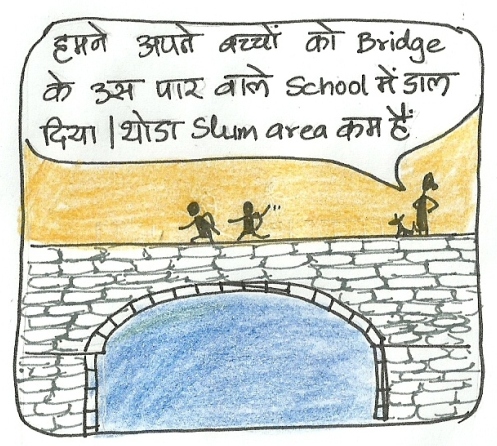 हमने अपने बच्चों को Bridge
के उस पार वाले School में डाल
दिया | थोडा Slum area कम हैं